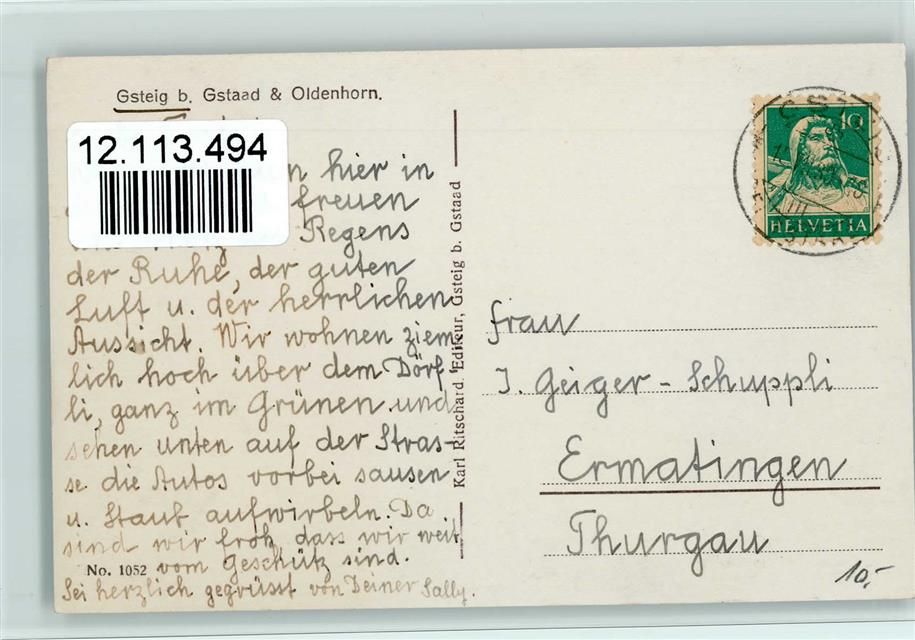 Gsteig b. Gstaad & Oldenhorn.
12.113.494
hier in
freuen
Regens
der Ruhe, der guten
Luft u. der herrlichen
Aussicht. Wir wohnen ziem-
lich hoch über dem Dörf-
li, ganz im Grünen und
sehen unten auf der Stras-
se die Autos vorbei sausen
u. Staub aufwirbeln. Da
sind wir froh, dass wir weit
No. 1052 vom Geschütz sind.
Sei herzlich gegrüsst von Deiner Sally.
Karl Ritschard, Editeur, Gsteig b. Gstaad
10
HELVETIA
Frau
J. Geiger - Schuppli
Ermatingen
Thurgau
10,-